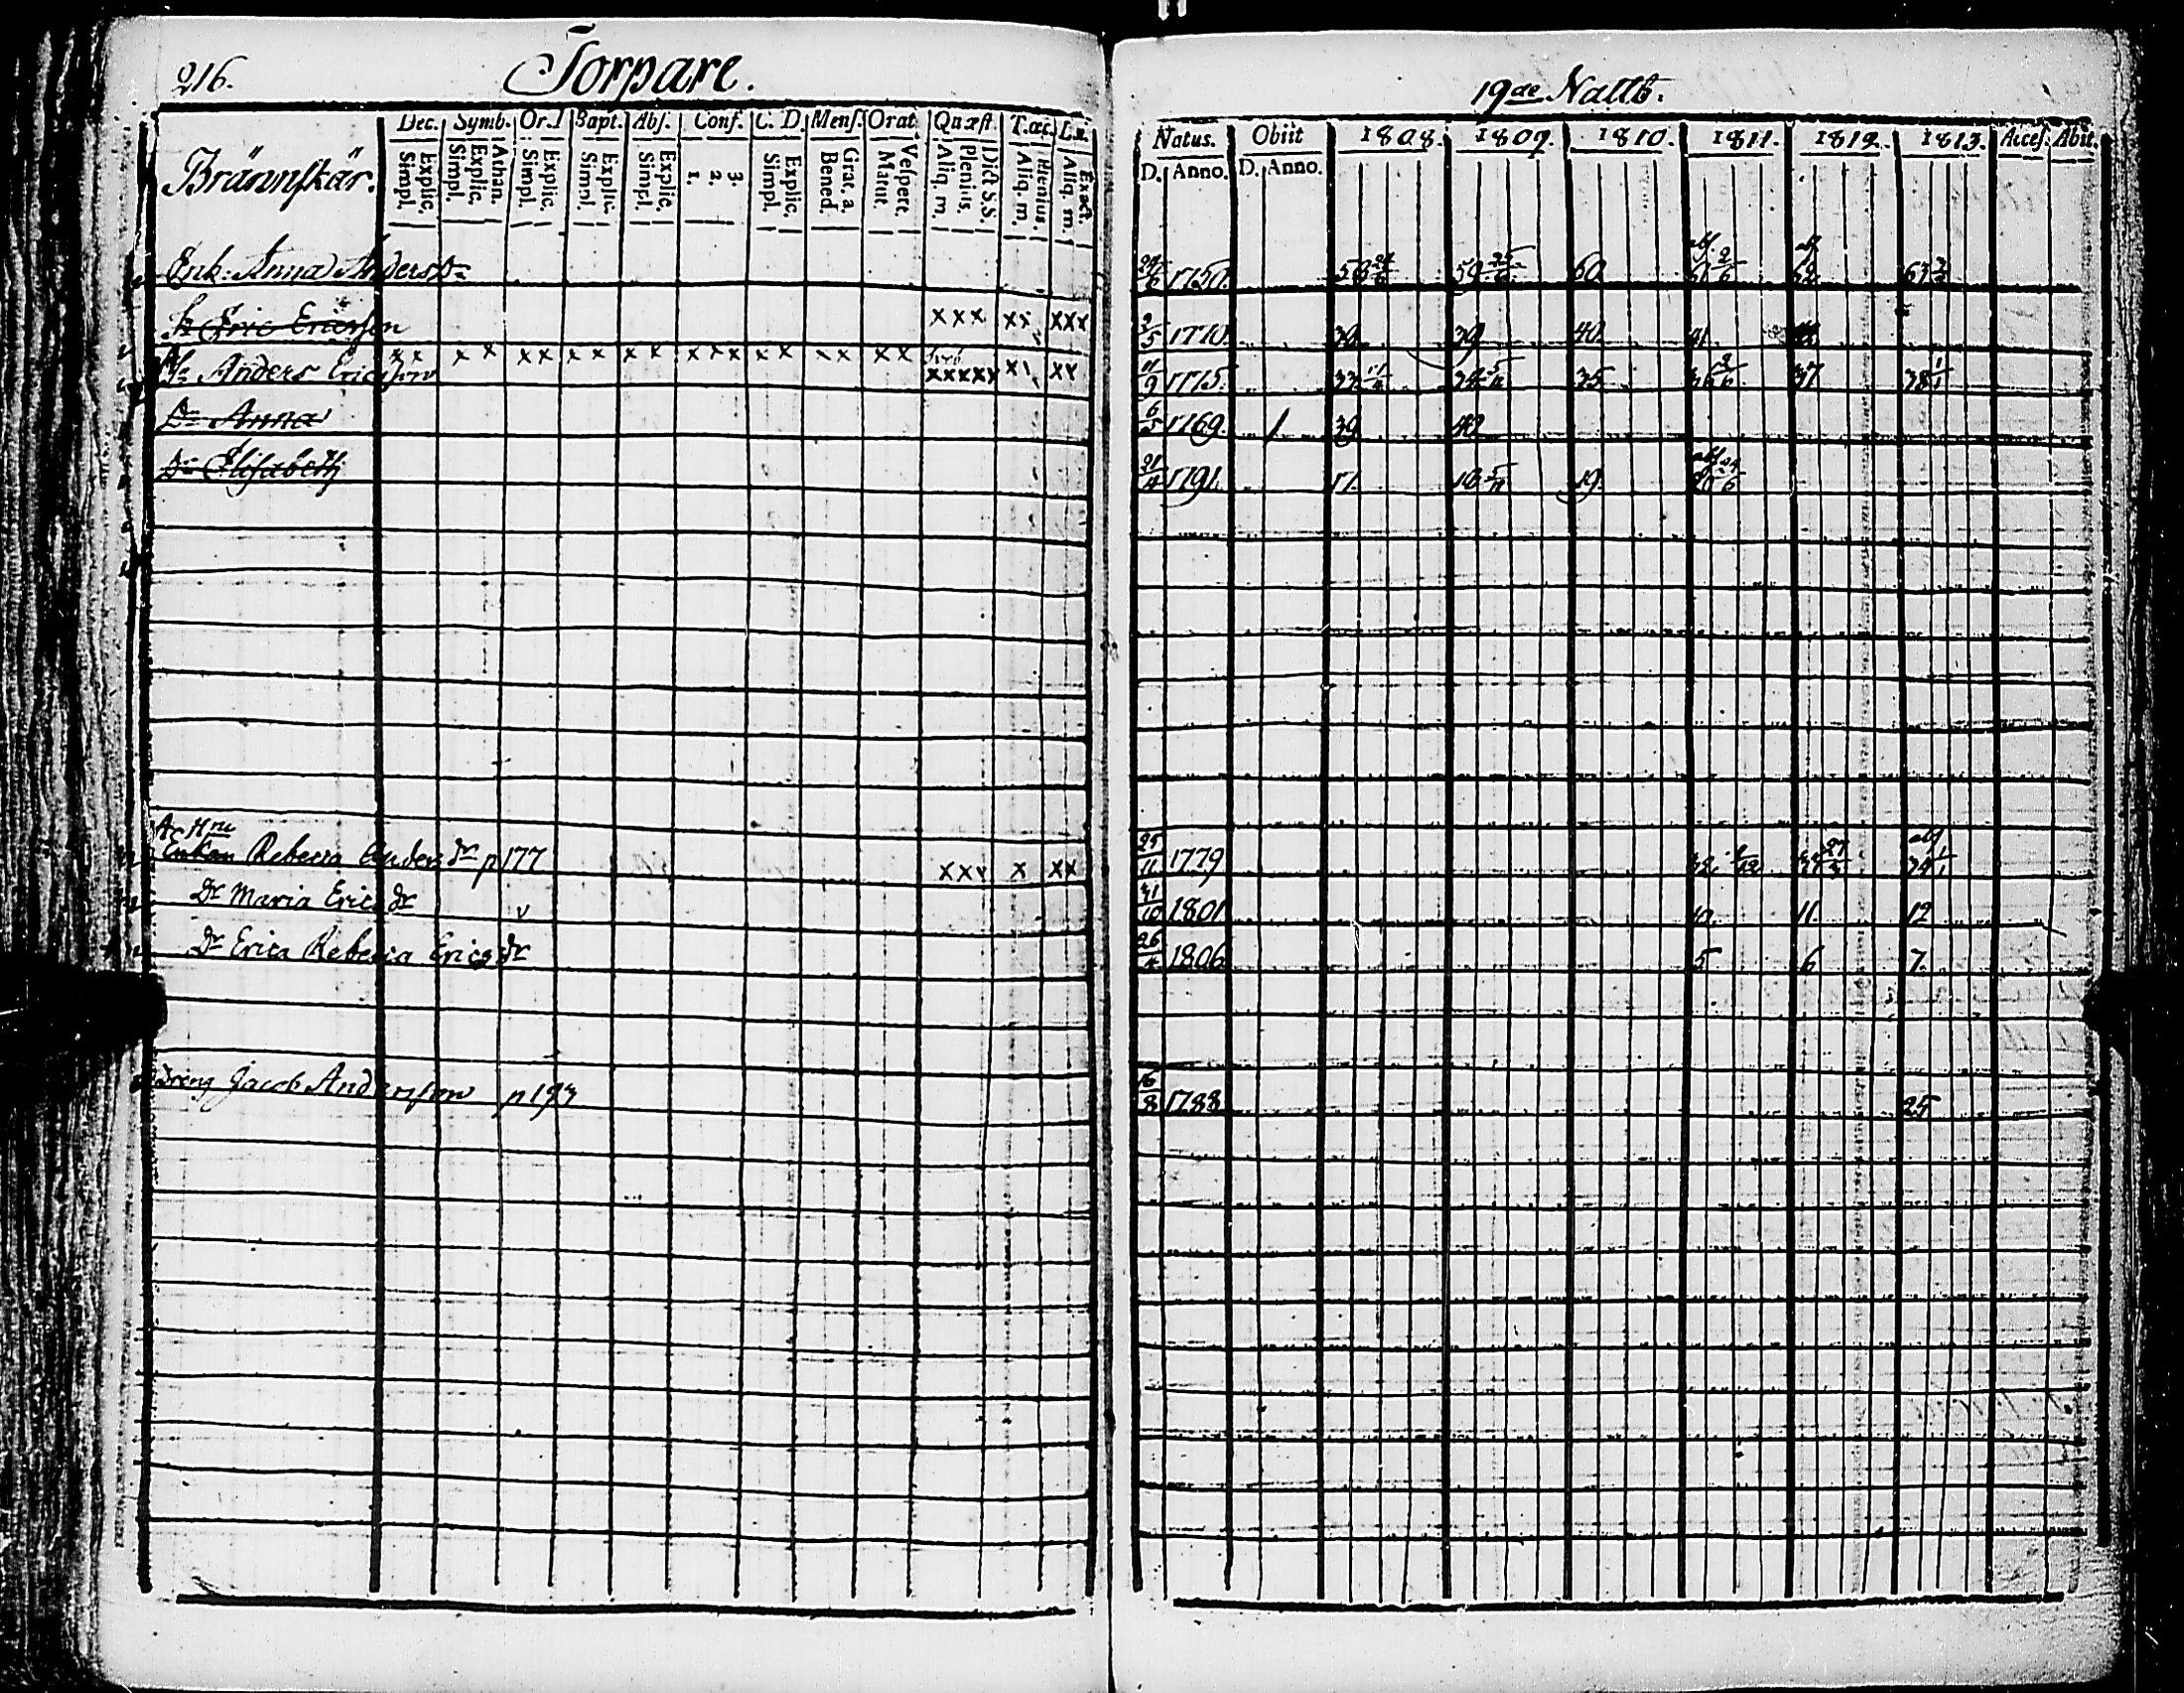 216. Torpare.
Brännskär.
Dec. Symb. Or. D Bapt. Abs. Conf. C. D. Mens. Orat. Quæst. T.œc. Lu.
Explic. Simpl. Athan. Explic. Simpl. Explic. Simpl. Explic. Simpl. Explic. Simpl. 3. 2. 1. Explic. Simpl. Grat. a. Bened. Vespert. Matut. Dict S.S. Plenius. Aliq. m. Plenius. Aliq. m. Exact. Aliq. m.
Enk: Anna Anders Dr
Eric Ericsson xxx xx xxx
Anders Ericsson xx xx xx xx xx xxx xx xx xx xxxxx xx xx
Dr Anna
Dr Elisabeth
A Hru
Enkan Rebecca Anders dr p 177 xxx x xx
Dr Maria Erics dr v
Dr Erica Rebecca Erics dr
Dreng Jacob Andersson p 193
19de Nattb.
Natus. Obiit 1808. 1809. 1810. 1811. 1812. 1813. Acces. Abit.
D. Anno. D. Anno.
1750. 58 24/6 59 25/6 60 61 2/6 62 63
2/5 1770. 38 39 40. 41
11/9 1775. 33 34 5/11 35. 36 37 38 1/1
6/5 1769. 39 40
21/4 1791. 17. 18 5/11 19.
25/11 1779 32 33 27/3 34 1/1
31/10 1801 10. 11 12
26/4 1806 5 6 7.
16/8 1788 25